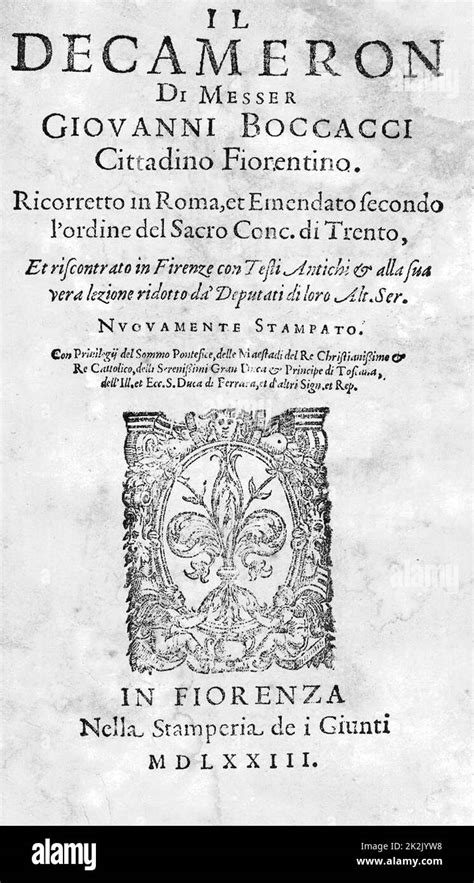 IL
DECAMERON
DI MESSER
GIOVANNI BOCCACCI
Cittadino Fiorentino.
Ricorretto in Roma, et Emendato ſecondo
l'ordine del Sacro Conc. di Trento,
Et riſcontrato in Firenze con Teſti Antichi & alla ſua
vera lezione ridotto da' Deputati di loro Alt. Ser.
NVOVAMENTE STAMPATO.
Con Priuilegij del Sommo Pontefice, delle Maeſtadi del Re Chriſtianiſſimo &
Re Cattolico, delli Sereniſſimi Gran Duca & Principe di Toſcana,
dell'Ill. et Ecc. S. Duca di Ferrara, et d'altri Sign. et Rep.
IN FIORENZA
Nella Stamperia de i Giunti
MDLXXIII.
alamy
Image ID: 2K2JYW8
www.alamy.com